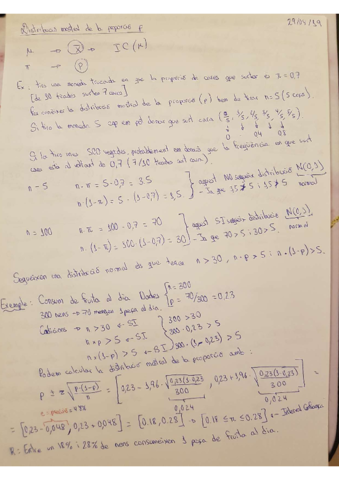 Distribució mostral de la proporció p
29/04/19
μ → x̄ → IC(μ)
π → p
Ex: tiro una moneda trucada en que la proporció de cares que surten és π = 0,7
[de 10 tirades surten 7 cares]
Ex: la distribució mostral de la proporció (p) hem de tirar n = 5 (5 cares).
Si tiro la moneda 5 cops em pot donar que surti cara
0 0,4 0,8
Si la tiro unes 500 vegades, probablement em donarà que la freqüència en que surt
cara està al voltant de 0,7 (7/10 tirades surt cara).
n = 5
n·π = 5·0,7 = 3,5
n(1-π) = 5·(1-0,7) = 1,5
aquest NO segueix distribució N(0,1)
normal
n = 100
n·π = 100·0,7 = 70
n·(1-π) = 100·(1-0,7) = 30
aquest SI segueix distribució N(0,1)
- Ja que 70 > 5 i 30 > 5 normal
Segueixen una distribució normal els que tenen n > 30, n·p > 5 i n·(1-p) > 5.
Exemple: Consum de fruita al dia. Dades
n = 300
p = 70/300 = 0,23
300 nens → 70 mengen 1 peça al dia.
Condicions → n > 30 ← SI
n·p > 5 ← SI
n·(1-p) > 5 ← SI
300 > 30
300·0,23 > 5
300·(1-0,23) > 5
Podem calcular la distribució mostral de la proporció amb:
p ± z √p·(1-p)/n = [0,23 - 1,96·√0,23(1-0,23)/300, 0,23 + 1,96·√0,23(1-0,23)/300] =
0,024
0,024
= [0,23 - 0,048, 0,23 + 0,048] = [0,18, 0,28] → [0,18 ≤ π ≤ 0,28] ← Interval Confiança
R: Entre un 18% i 28% de nens consumeixen 1 peça de fruita al dia.